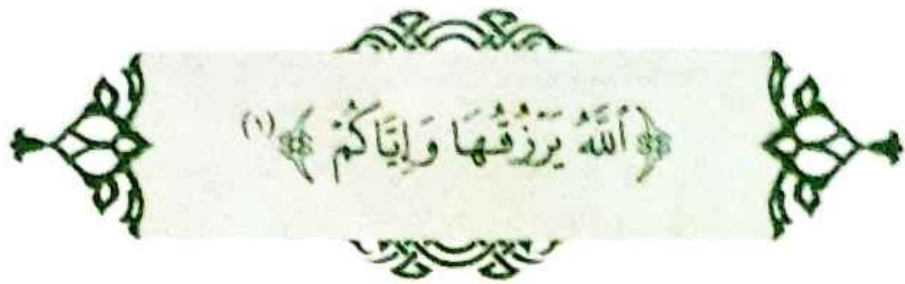 ﴿ٱللَّهُ يَرْزُقُهَا وَإِيَّاكُمْ﴾(١)